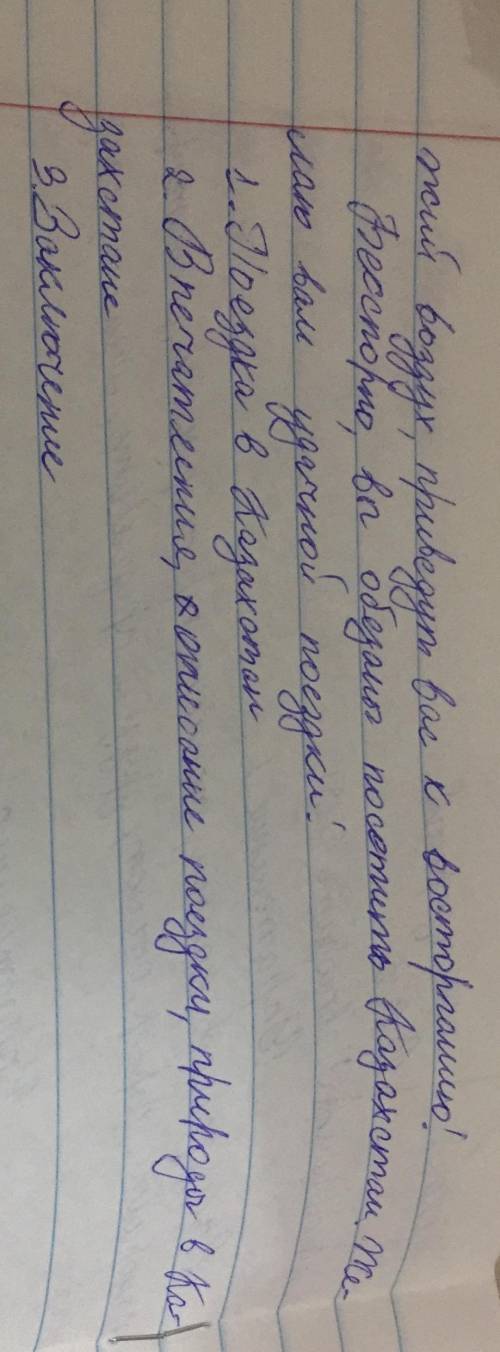 жий воздух, приведут вас к восторганию!
Бесспорно, вы обязаны посетить Казахстан. Же-
лаю вам удачной поездки!
1. Поездка в Казахстан
2. Впечатления, описание поездки, природы в Ка-
захстане
3. Заключение